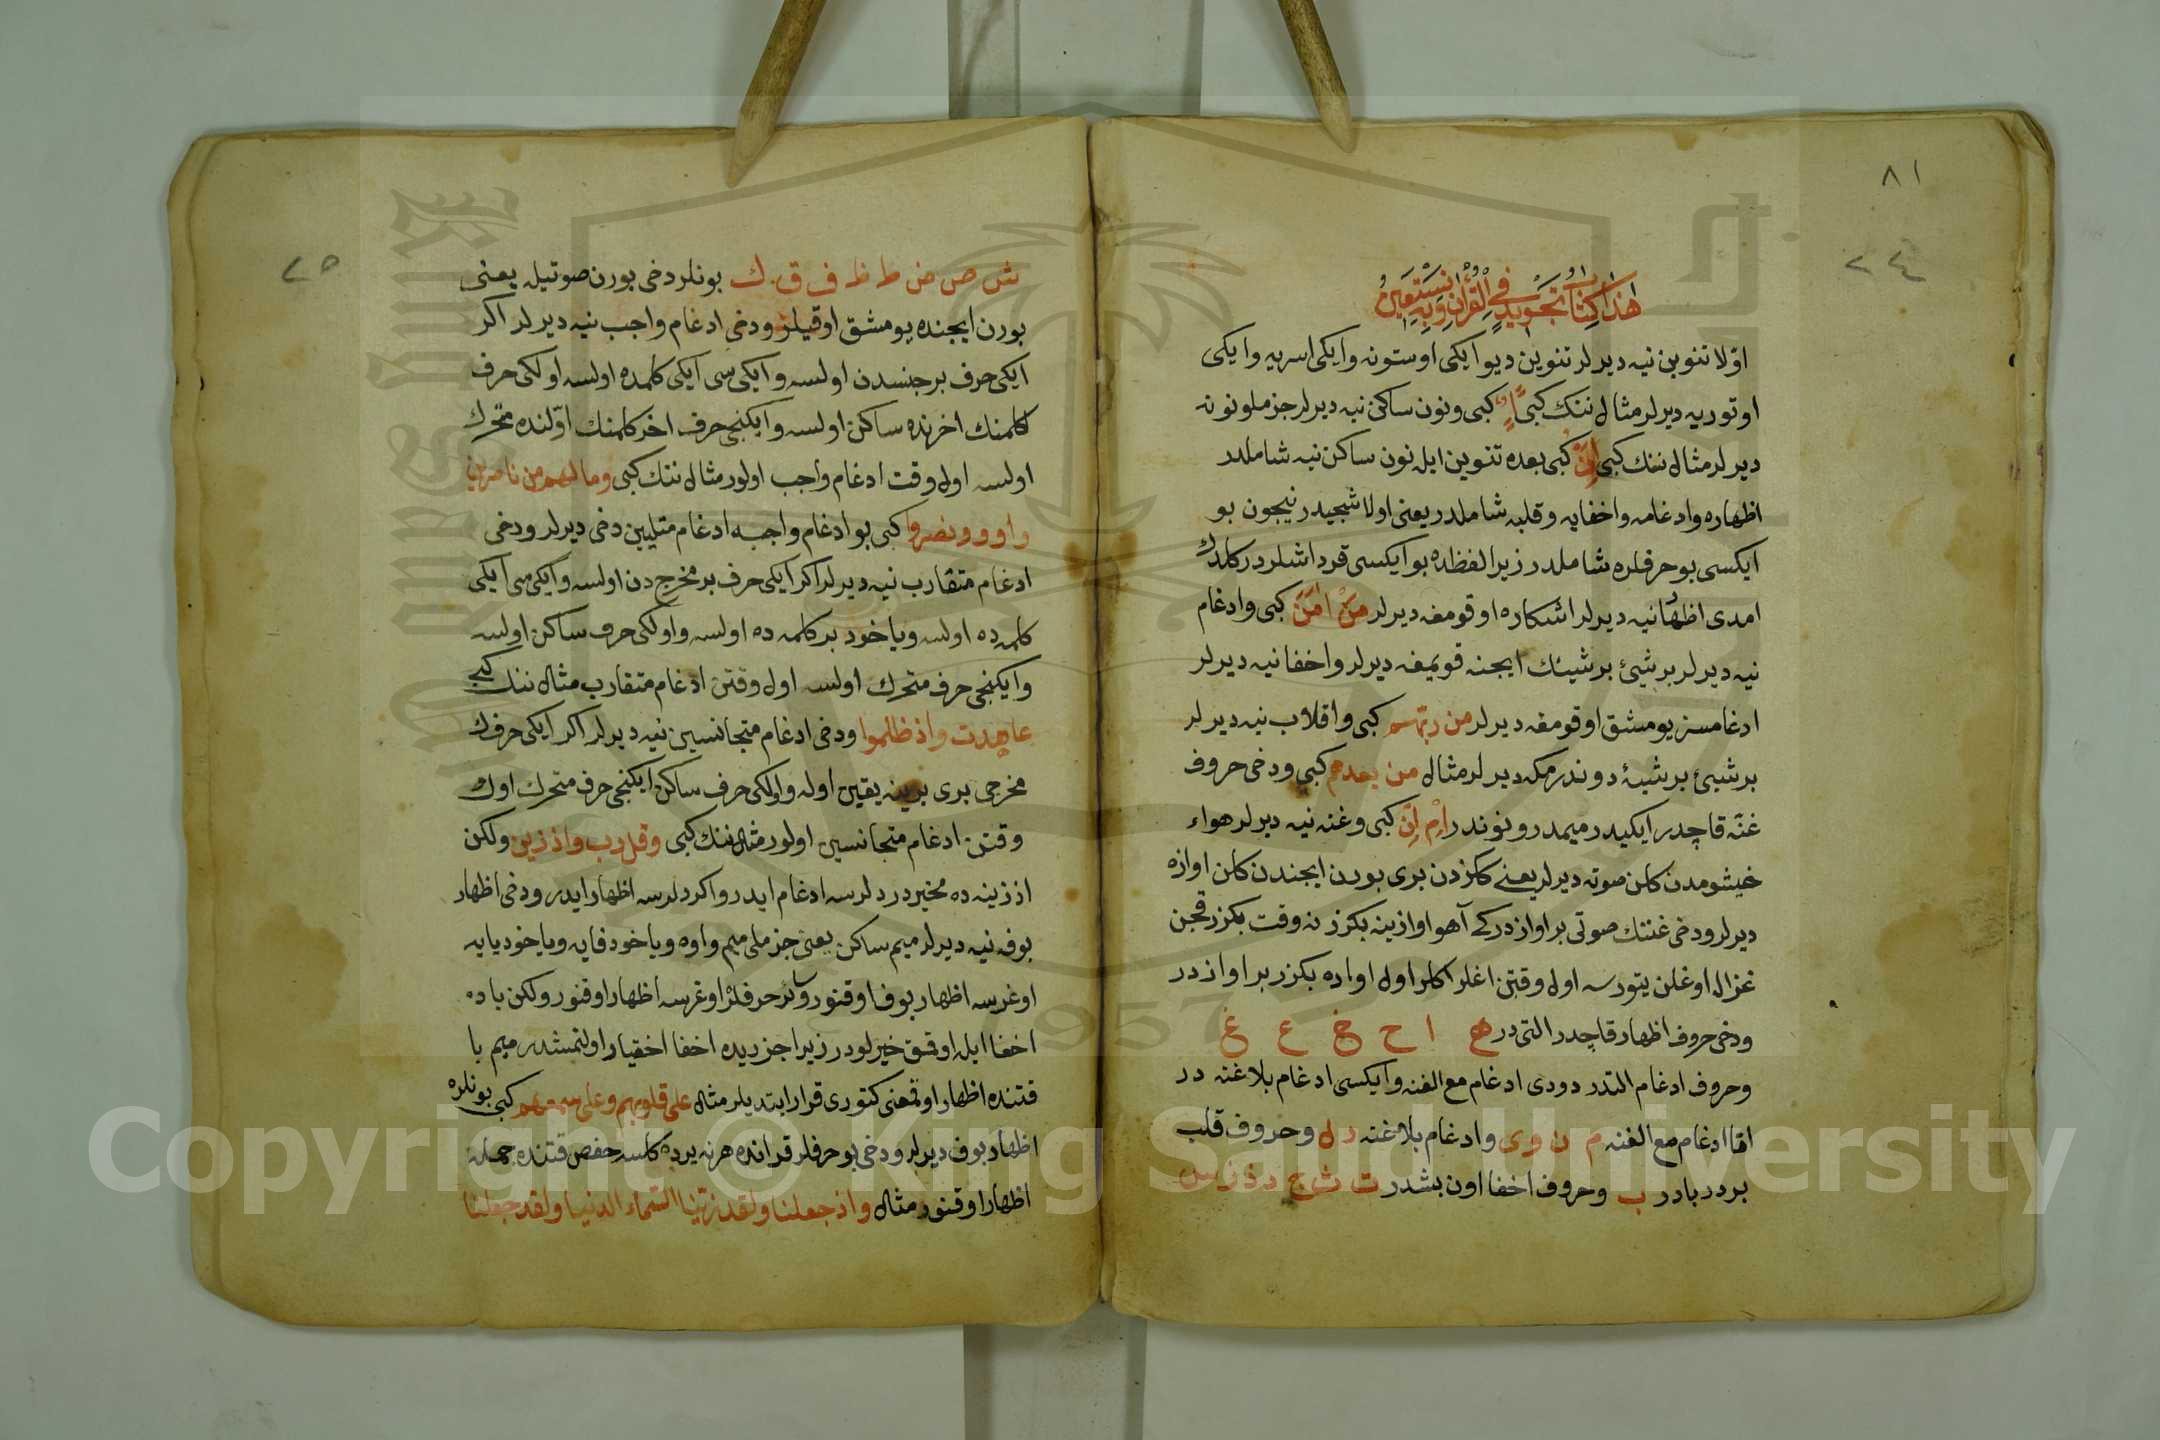 ٨١
٢٤
هٰذَا كِتَابُ تَجْوِيدٍ فِي الْقُرْاٰنِ وَبِهِ نَسْتَعِينُ
اوّلا تنوين نيه ديرلر تنوين ديو ايكى اوستونه وايكى اسريه وايكى
اوتوريه ديرلر مثال ننك كبى اً اٍ اٌ كبى ونون ساكن نيه ديرلر جزملو نونه
ديرلر مثال ننك كبى اِنْ كبى بعده تنوين ايله نون ساكن نيه شاملدر
اظهاره وادغامه واخفايه وقلبه شاملدر يعنى اولاشجيدر نيجون بو
ايكسى بو حرفلره شاملدر زيرا لفظده بو ايكسى قرداشلردر كلدك
امدى اظهار نيه ديرلر اشكاره اوقومغه ديرلر مَنْ اٰمَنَ كبى وادغام
نيه ديرلر بر شيئ بر شينك ايجنه قويمغه ديرلر واخفا نيه ديرلر
ادغامسز يومشق اوقومغه ديرلر من ربهم كبى واقلاب نيه ديرلر
بر شيئ بر شيۀ دوندرمكه ديرلر مثال من بعدهم كبى ودخى حروف
غنّه قاچدر ايكيدر ميمدر ونوندر امْ اِنّ كبى وغنه نيه ديرلر هواء
خيشومدن كلن صوته ديرلر يعنى ككزدن برى بورن ايجندن كلن اوازه
ديرلر ودخى غننك صوتى بر اوازدر كى آهو اوازينه بكزر نه وقت بكزر قچن
غزال اوغلن يتورسه اول وقتن اغلر اكلر اول اوازه بكزر بر اوازدر
ودخى حروف اظهار قاچدر التى در ه ا ح خ ع غ
وحروف ادغام التدر دودى ادغام مع الغنه وايكسى ادغام بلاغنه در
امّا ادغام مع الغنه م ن و ى وادغام بلاغنه ر ل وحروف قلب
بردر بادر ب وحروف اخفا اون بشدر ت ث ج د ذ ز س
٢٥
ش ص ض ط ظ ف ق ك بونلر دخى بورن صوتيله يعنى
بورن ايجنده يومشق اوقيلر ودخى ادغام واجب نيه ديرلر اكر
ايكى حرف بر جنسدن اولسه وايكى سى ايكى كلمده اولسه اولكى حرف
كلمنك اخرنده ساكن اولسه وايكنجى حرف اخر كلمنك اوّلنده متحرك
اولسه اول وقت ادغام واجب اولور مثال ننك كبى وما لهم من ناصرين
واووا ونصروا كبى بو ادغام واجبه ادغام مثليين دخى ديرلر ودخى
ادغام متقارب نيه ديرلر اكر ايكى حرف بر مخرجدن اولسه وايكى سى ايكى
كلمه ده اولسه ويا خود بر كلمه ده اولسه واولكى حرف ساكن اولسه
وايكنجى حرف متحرك اولسه اول وقتن ادغام متقارب مثال ننك كبى
عاهدت واذ ظلموا ودخى ادغام متجانسين نيه ديرلر اكر ايكى حرفك
مخرجى برى برينه يقين اوله واولكى حرف ساكن ايكنجى حرف متحرك اول
وقتن ادغام متجانسين اولور مثال ننك كبى وقل رب واذ زين ولكن
اذ زينه ده مخيردر دلرسه ادغام ايدر واكر دلرسه اظهار ايدر ودخى اظهار
بوفه نيه ديرلر ميم ساكن يعنى جزملى ميم واوه ويا خود فايه ويا خود يايه
اوغرسه اظهار بوف اوقنور وسائر حرفلر اوغرسه اظهار اوقنور ولكن باده
اخفا ايله اوقمق خيرلودر زيرا جزريده اخفا اختيار اولنمشدر ميم با
قتنده اظهار اوقمغنى كتورى قرار ايتديلر مثال على قلوبهم وعلى سمعهم كبى بونلره
اظهار بوف ديرلر ودخى بو حرفلر قرانده هر نه يرده كلسه حفص قتنده جمله
اظهار اوقنور مثال واذ جعلنا ولقد زينا السماء الدنيا ولقد جعلنا
Copyright © King Saud University
1957